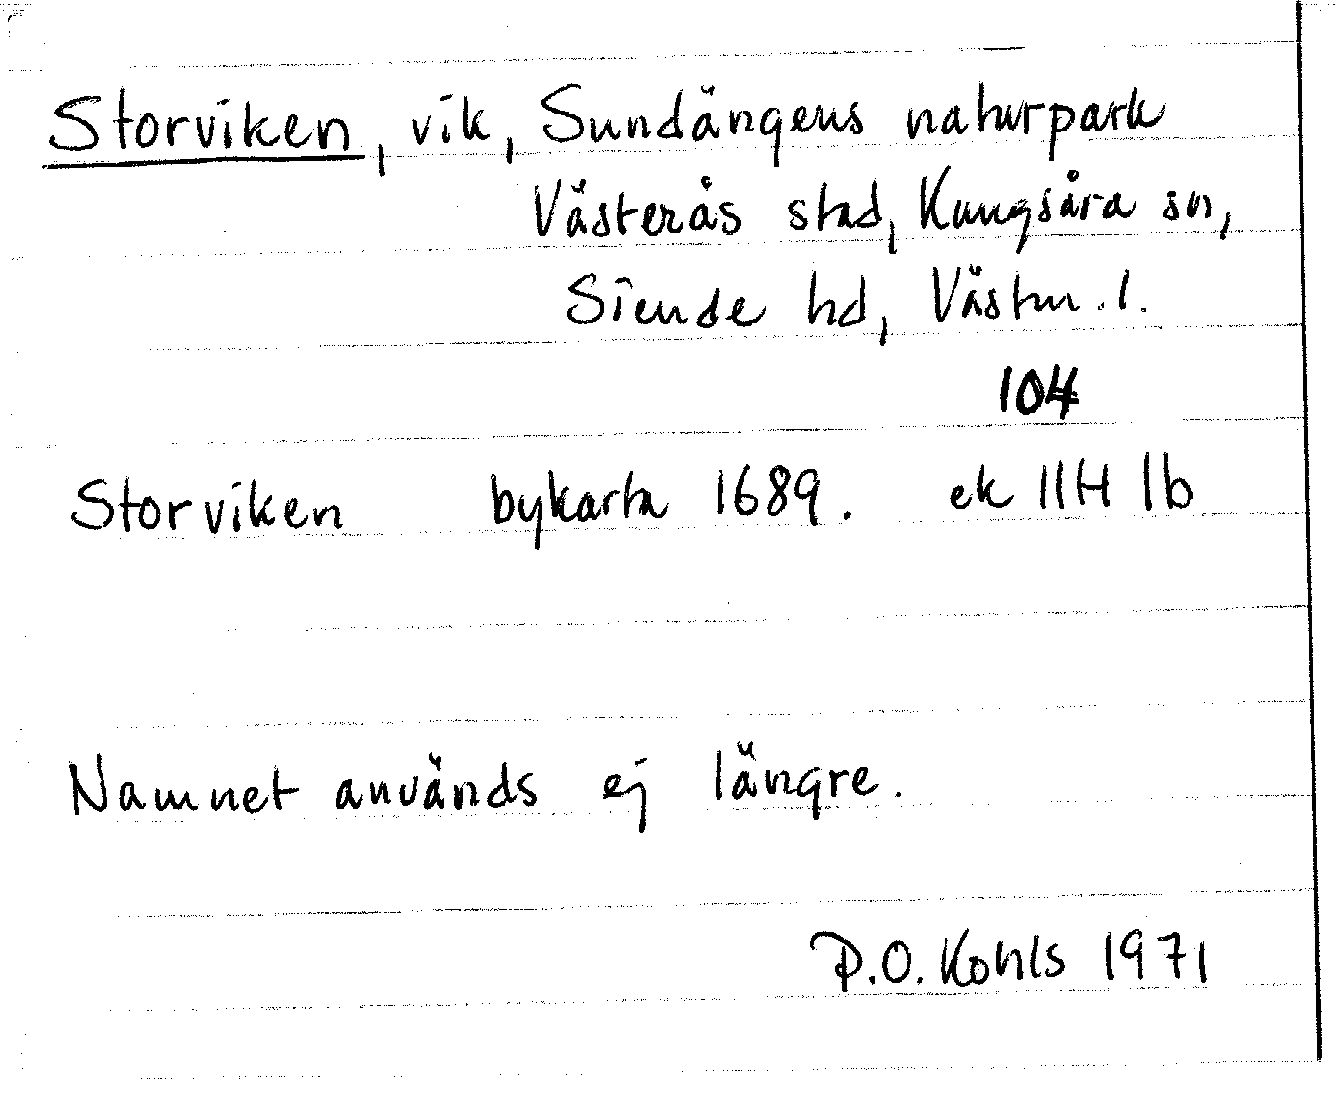 Storviken, vik, Sundängens naturpark
Västerås stad, Kungsåra sn,
Siende hd, Västm. l.
104
Storviken bykarta 1689. ek 11H 1b
Namnet används ej längre.
P.O. Kohls 1971